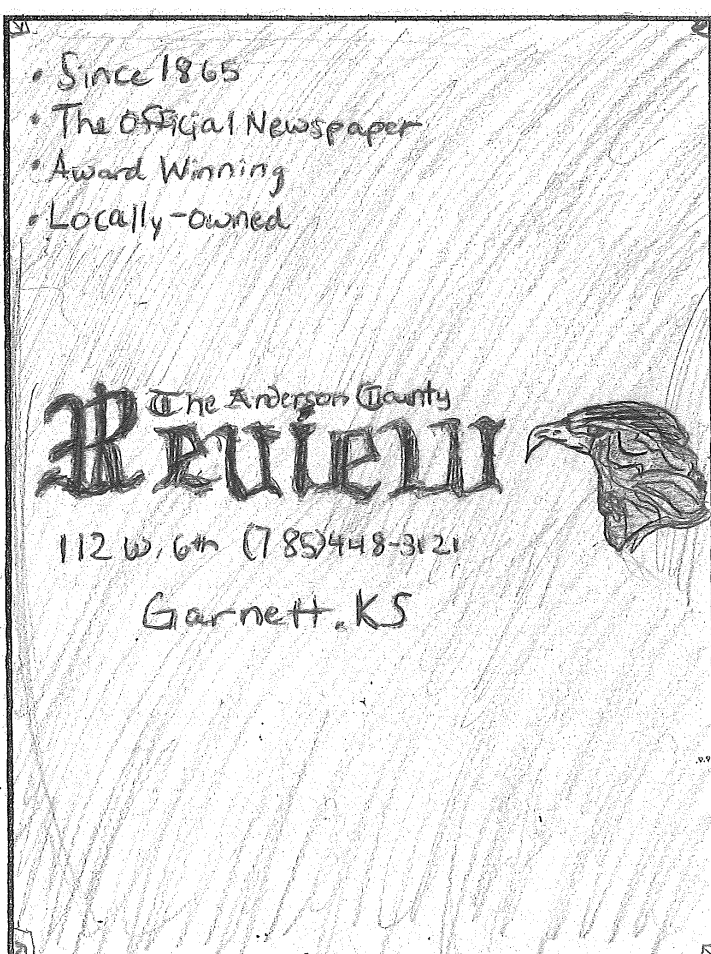 • Since 1865
• The Official Newspaper
• Award Winning
• Locally-owned
The Anderson County
Review
112 W. 6th (785)448-3121
Garnett. KS